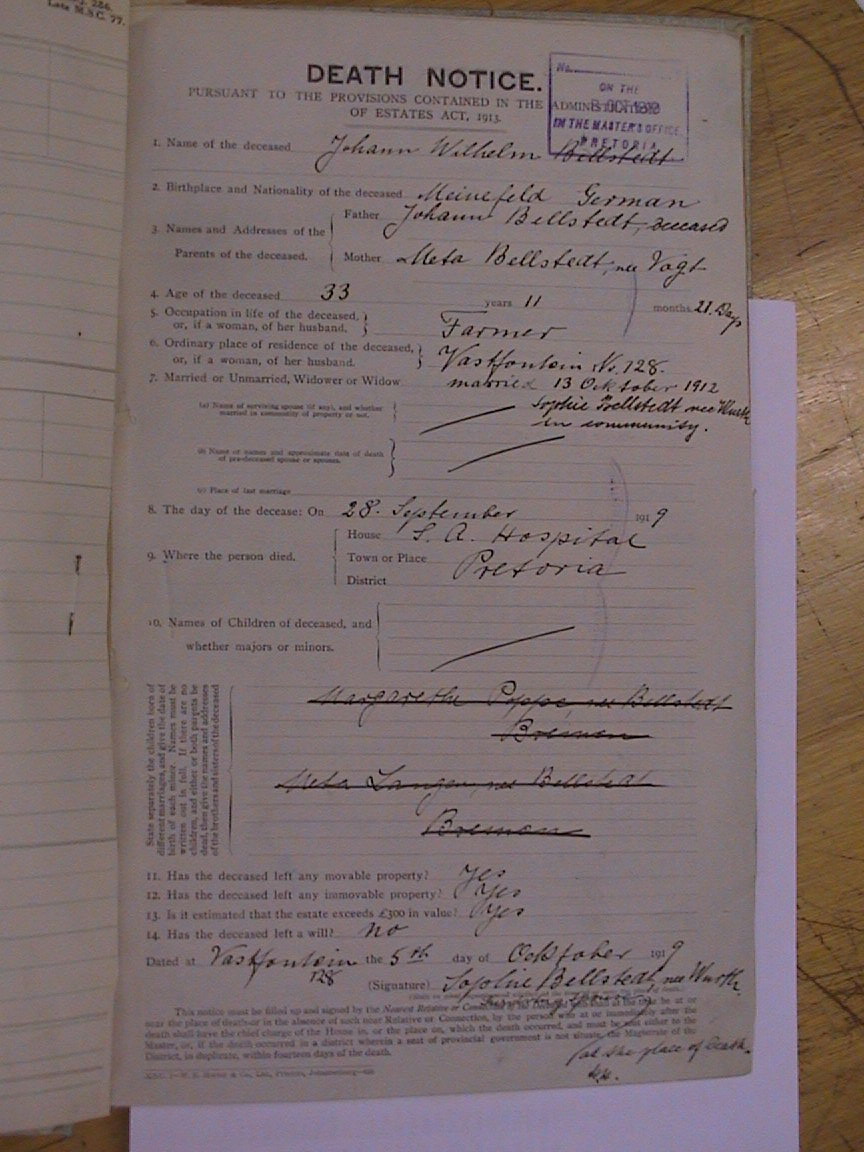 Late M.S.C. 77.
DEATH NOTICE.
PURSUANT TO THE PROVISIONS CONTAINED IN THE ADMINISTRATION
OF ESTATES ACT, 1913.
No.
ON THE
OCT 1919
IN THE MASTER'S OFFICE
PRETORIA
1. Name of the deceased Johann Wilhelm Bellstedt
2. Birthplace and Nationality of the deceased Meinefeld German
3. Names and Addresses of the Parents of the deceased.
Father Johann Bellstedt, deceased
Mother Meta Bellstedt, nee Vogt
4. Age of the deceased 33 years 11 months 21 Days
5. Occupation in life of the deceased, or, if a woman, of her husband. Farmer
6. Ordinary place of residence of the deceased, or, if a woman, of her husband. Vastfontein No. 128.
7. Married or Unmarried, Widower or Widow married 13 Oktober 1912
(a) Name of surviving spouse (if any), and whether married in community of property or not. Sophie Bellstedt nee Wurth
in community.
(b) Name or names and approximate date of death of pre-deceased spouse or spouses.
(c) Place of last marriage
8. The day of the decease: On 28. September 1919
9. Where the person died.
House S. A. Hospital
Town or Place Pretoria
District
10. Names of Children of deceased, and
whether majors or minors.
State separately the children born of
different marriages, and give the date of
birth of each minor. Names must be
written out in full. If there are no
children, and either or both parents be
dead, then give the names and addresses
of the brothers and sisters of the deceased
Margarethe Poppe, nee Bellstedt
Bremen
Meta Langen, nee Bellstedt
Bremen
11. Has the deceased left any movable property? Yes
12. Has the deceased left any immovable property? Yes
13. Is it estimated that the estate exceeds £300 in value? Yes
14. Has the deceased left a will? no
Dated at Vastfontein 128 the 5th day of Ocktober 1919
(Signature) Sophie Bellstedt, nee Wurth.
Surviving Spouse
This notice must be filled up and signed by the Nearest Relative or Connection of the deceased, who is at or
near the place of death, or in the absence of such near Relative or Connection, by the person who at or immediately after the
death shall have the chief charge of the House in, or the place on, which the death occurred, and must be sent either to the
Master, or, if the death occurred in a district wherein a seat of provincial government is not situate, the Magistrate of the
District, in duplicate, within fourteen days of the death.
at the place of death.